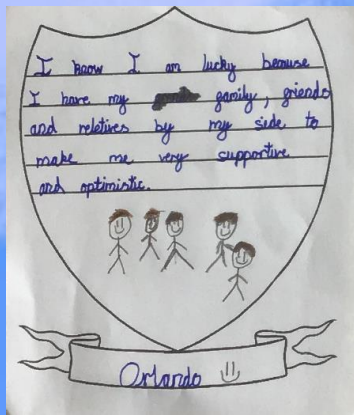 I know I am lucky because
I have my family, friends
and reletives by my side to
make me very supportive
and optimistic.
Orlando